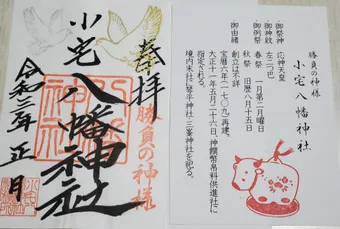 奉拝
勝負の神様
小宅八幡神社
令和三年正月
勝負の神様
小宅八幡神社
御祭神 応神天皇
御神紋 左三つ巴
御例祭 春祭 一月第二月曜日
秋祭 旧暦八月十五日
御由緒 創立は不詳
宝暦六年(一七〇九)再建。
大正十一年五月二十六日、神饌幣帛料供進社に
指定される。
境内末社に琴平神社・三峯神社を祀る。